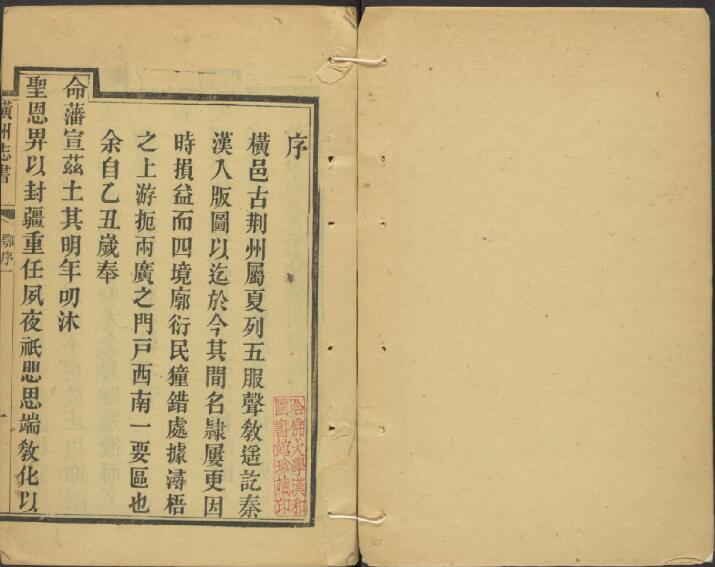 序
橫邑古荆州屬夏列五服聲敎遥訖秦
漢入版圖以迄於今其間名隷屢更因
時損益而四境廓衍民獞錯處據潯梧
之上游扼兩廣之門戸西南一要區也
余自乙丑歲奉
命藩宣茲土其明年叨沐
聖恩畀以封疆重任夙夜祇愳思端敎化以
橫州志書
鄂序
一
哈佛大學漢和
圖書館珍藏印